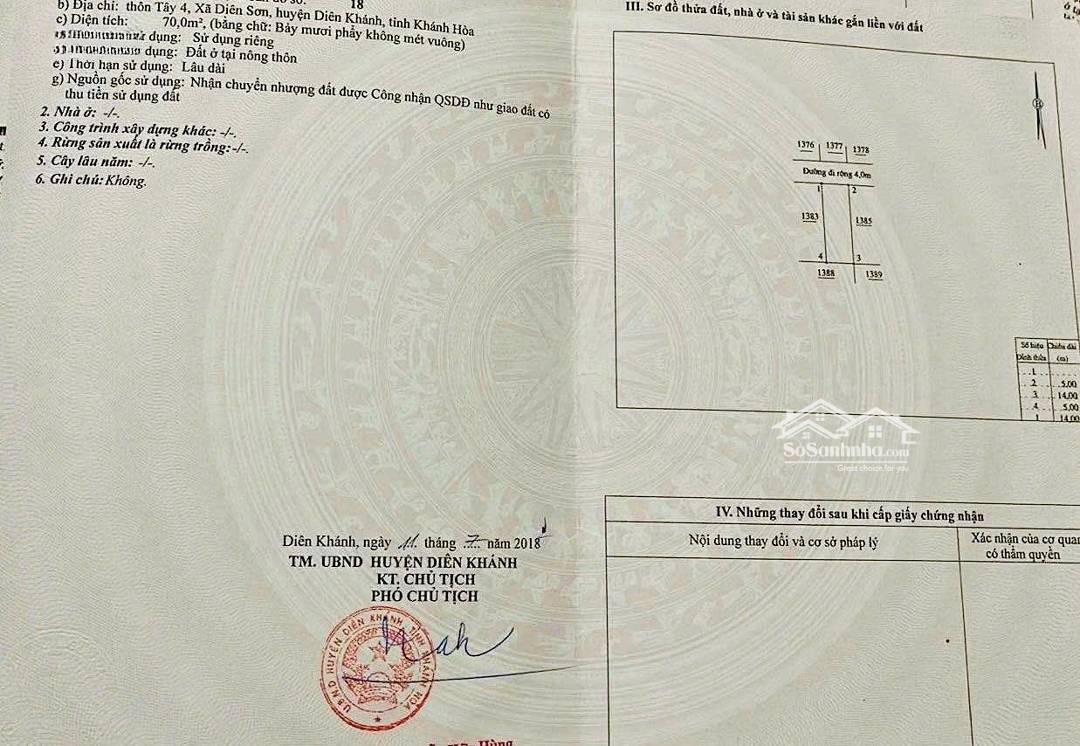 18
b) Địa chỉ: thôn Tây 4, Xã Diên Sơn, huyện Diên Khánh, tỉnh Khánh Hòa
c) Diện tích: 70,0m², (bằng chữ: Bảy mươi phẩy không mét vuông)
sử dụng: Sử dụng riêng
dụng: Đất ở tại nông thôn
e) Thời hạn sử dụng: Lâu dài
g) Nguồn gốc sử dụng: Nhận chuyển nhượng đất được Công nhận QSDĐ như giao đất có
thu tiền sử dụng đất
2. Nhà ở: -/-.
3. Công trình xây dựng khác: -/-.
4. Rừng sản xuất là rừng trồng:-/-.
5. Cây lâu năm: -/-.
6. Ghi chú: Không.
Diên Khánh, ngày 11 tháng 7 năm 2018
TM. UBND HUYỆN DIÊN KHÁNH
KT. CHỦ TỊCH
PHÓ CHỦ TỊCH
UBND HUYỆN DIÊN KHÁNH TỈNH KHÁNH HÒA
Hùng
III. Sơ đồ thửa đất, nhà ở và tài sản khác gắn liền với đất
B
1376 1377 1378
Đường đi rộng 4,0m
1 2
1383 1385
4 3
1388 1389
Số hiệu Chiều dài
Đỉnh thửa (m)
1
2 5,00
3 14,00
4 5,00
1 14,00
SoSanhnha.com
Great choice for you
IV. Những thay đổi sau khi cấp giấy chứng nhận
Nội dung thay đổi và cơ sở pháp lý
Xác nhận của cơ quan
có thẩm quyền